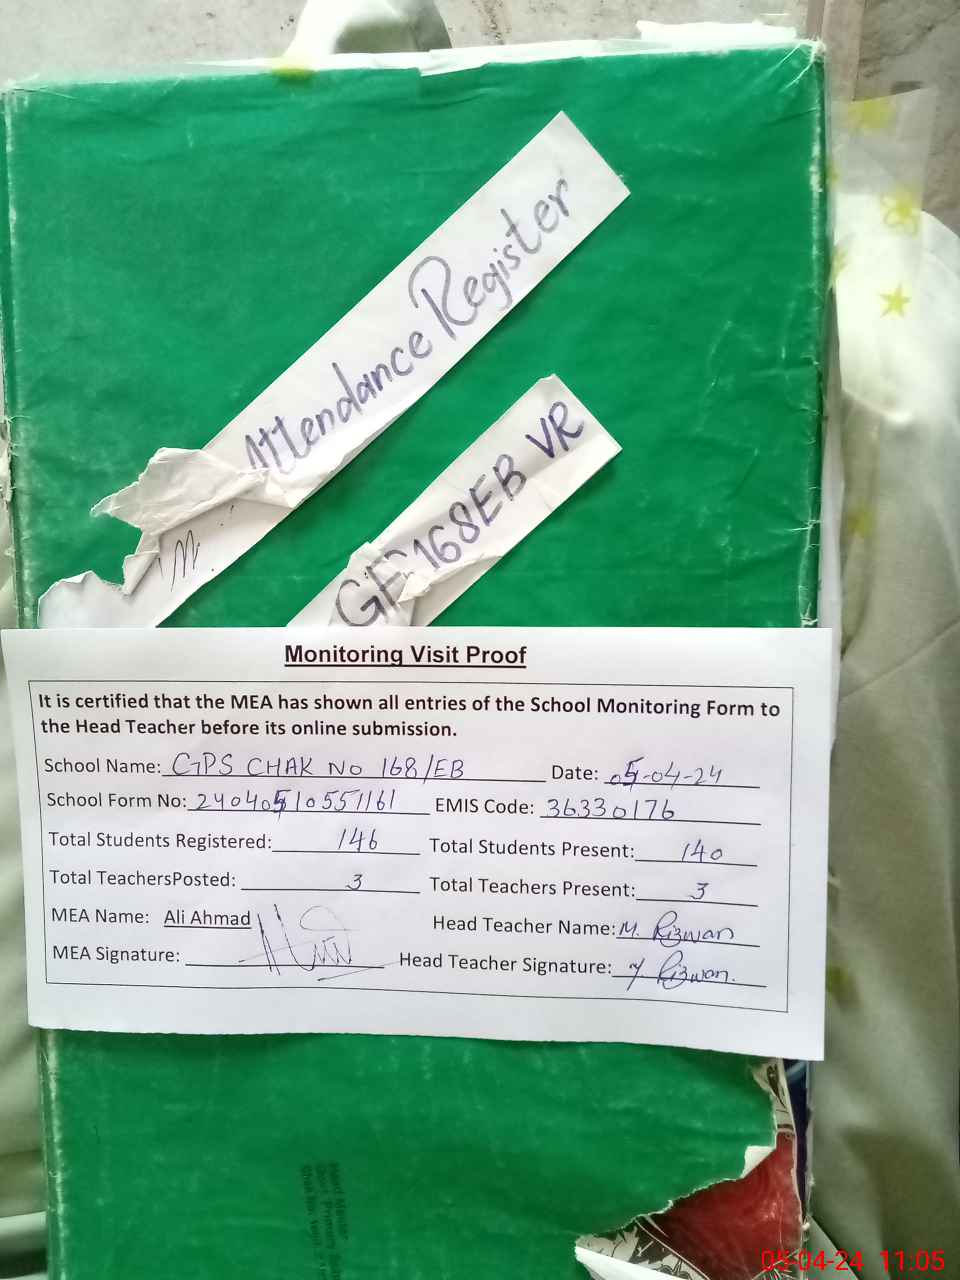 Attendance Register
M.
168EB VR
Monitoring Visit Proof
It is certified that the MEA has shown all entries of the School Monitoring Form to
the Head Teacher before its online submission.
School Name: GPS CHAK No 168/EB Date: 05-04-24
School Form No: 24040510551161 EMIS Code: 36330176
Total Students Registered: 146 Total Students Present: 140
Total TeachersPosted: 3 Total Teachers Present: 3
MEA Name: Ali Ahmad Head Teacher Name: M. Rizwan
MEA Signature: Head Teacher Signature: M. Rizwan.
05-04-24 11:05